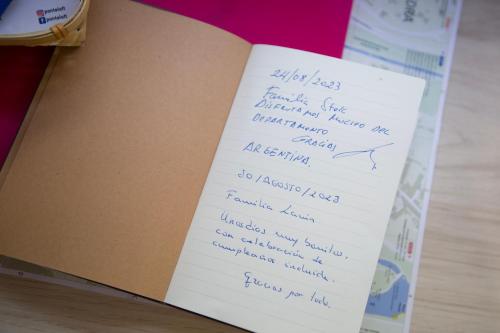 pontaloft
pontaloft
24/08/2023
Familia
DISFRUTAMOS MUCHO DEL
DEPARTAMENTO
GRACIAS
ARGENTINA.
30/AGOSTO/2023
Familia
Unos dias muy bonitos,
con celebración de
cumpleaños incluida.
Gracias por todo.